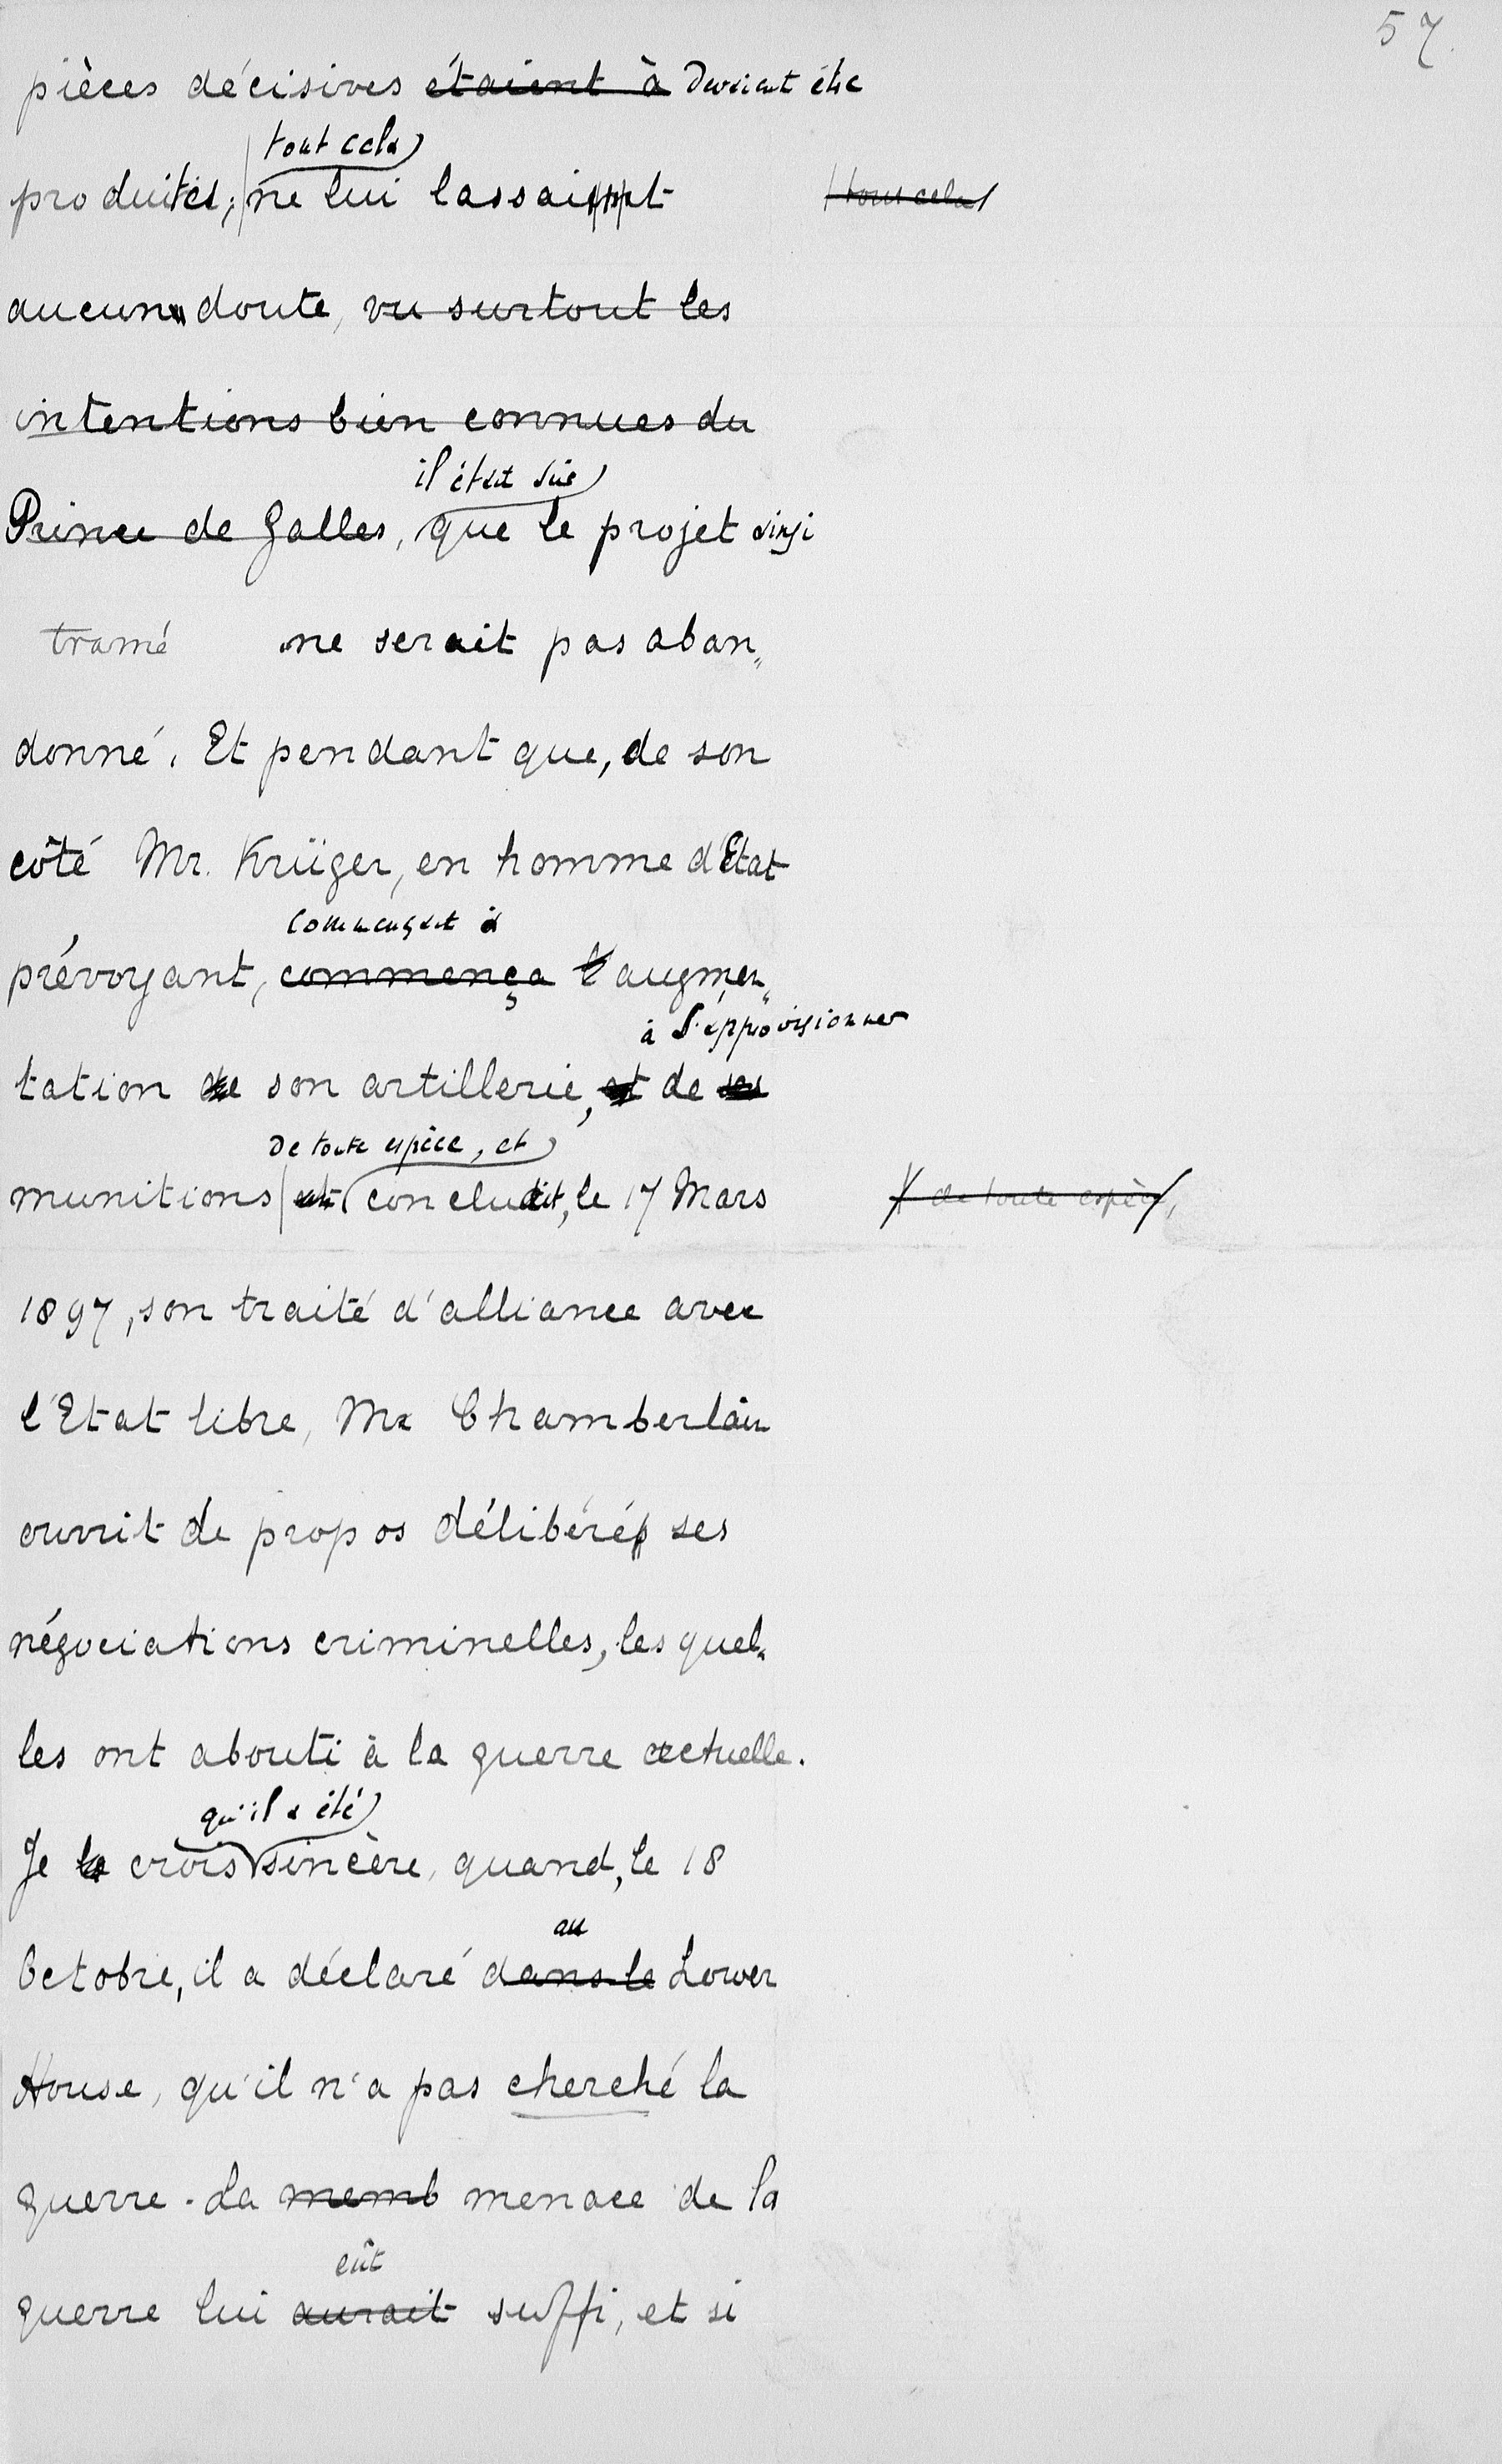 57.
pièces décisives étaient à devraient être
tout cela
produites, ne lui lassaient tous cela
aucun doute, vu surtout les
intentions bien connues du
il était sûr
Prince de Galles, que le projet ainsi
tramé ne serait pas aban„
donné. Et pendant que, de son
côté Mr. Krüger, en homme d'Etat
commençait à
prévoyant, commença l'augmen„
à s'approvisionner
tation de son artillerie, et de ses
de toute espèce, et
munitions et concludit, le 17 Mars de toute espèce,
1897, son traité d'alliance avec
l'Etat libre, Mr Chamberlain
ouvrit de propos délibérés ses
négociations criminelles, les quel„
les ont abouti à la guerre actuelle.
qu'il a été
Je le crois sincère, quand, le 18
au
Octobre, il a déclaré dans le Lower
House, qu'il n'a pas cherché la
guerre. La memb menace de la
eût
guerre lui aurait suffi, et si